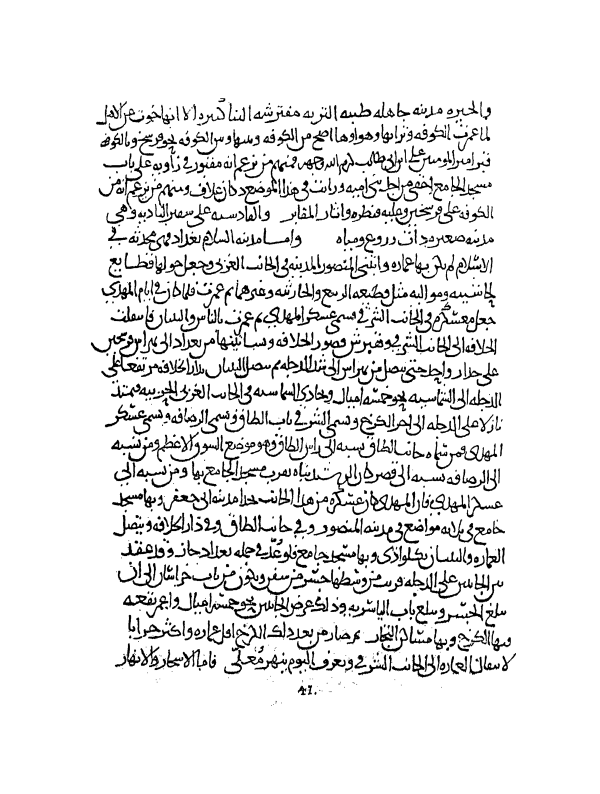 والحيره مدينه جاهله طيبه التربه مفترشه البنا كبيره الا انها خوت عن الاهل
لما عمرت الكوفه وترابها وهواوها اصح من الكوفه وبينها وبين الكوفه نحو فرسخ وبالكوفه
قبر امير المومنين علي ابن ابي طالب كرم الله وجهه فمنهم من يزعم انه مقبور في زاويه على باب
مسجد الجامع اخفي من اجل بني اميه ورايت في هذا الموضع دكان علاف ومنهم من يزعم انه من
الكوفه على فرسخين وعليه قنطره واثار المقابر والقادسيه على سفير الباديه وهي
مدينه صغيره ذات زروع ومياه واما مدينه السلام بغداد فهي محدثه في
الاسلام لم يكن بها عماره وابتنى المنصور المدينه في الجانب الغربي وجعل حولها قطايع
لحاشيته ومواليه مثل قطيعه الربيع والحارثيه وغيرهما ثم عمرت فلما كان في ايام المهدي
جعل معسكره في الجانب الشرقي فسمي عسكر المهدي ثم عمرت بالناس والبنيان فانتقلت
الخلافه الى الجانب الشرقي وقصور الخلافه وبساتينها من بغداد الى نهر بين فرسخين
على جدار واحد حتى يتصل من نهر بين الى شط الدجله ثم يتصل البنيان بدار الخلافه مرتفعا على
الدجله الى الشماسيه نحو خمسه اميال وتحاذي الشماسيه في الجانب الغربي الحربيه فيمتد
نازلا على الدجله الى اخر الكرخ ويسمى الشرقي باب الطاق ويسمى الرصافه ويسمى عسكر
المهدي فمن سماه جانب الطاق نسبه الى راس الطاق وهو موضع السوق الاعظم ومن نسبه
الى الرصافه نسبه الى قصر كان الرشيد بناه بقرب مسجد الجامع بها ومن نسبه الى
عسكر المهدي فان المهدي كان عسكره من هذا الجانب حذا مدينه ابي جعفر وبها مسجد
جامع في ثلاثه مواضع في مدينه المنصور وفي جانب الطاق وفي دار الخلافه ويتصل
العماره والبنيان بكلواذى وبها مسجد جامع فلو عُدّ في جمله بغداد جاز وقد عقد
بين الجانبين على الدجله قريب من وسطها جسر من سفن ويكون من باب خراسان الى ان
يبلغ الجسر ويبلغ باب الياسريه وذلك عرض الجانبين نحو خمسه اميال واعمر بقعه
فيها الكرخ وبها مساكن التجار ثم صار من بعد ذلك الكرخ اقل عماره واكثر خرابا
لانتقال العماره الى الجانب الشرقي ويعرف اليوم بنهر مُعلّى فاما الاشجار والانهار
41.